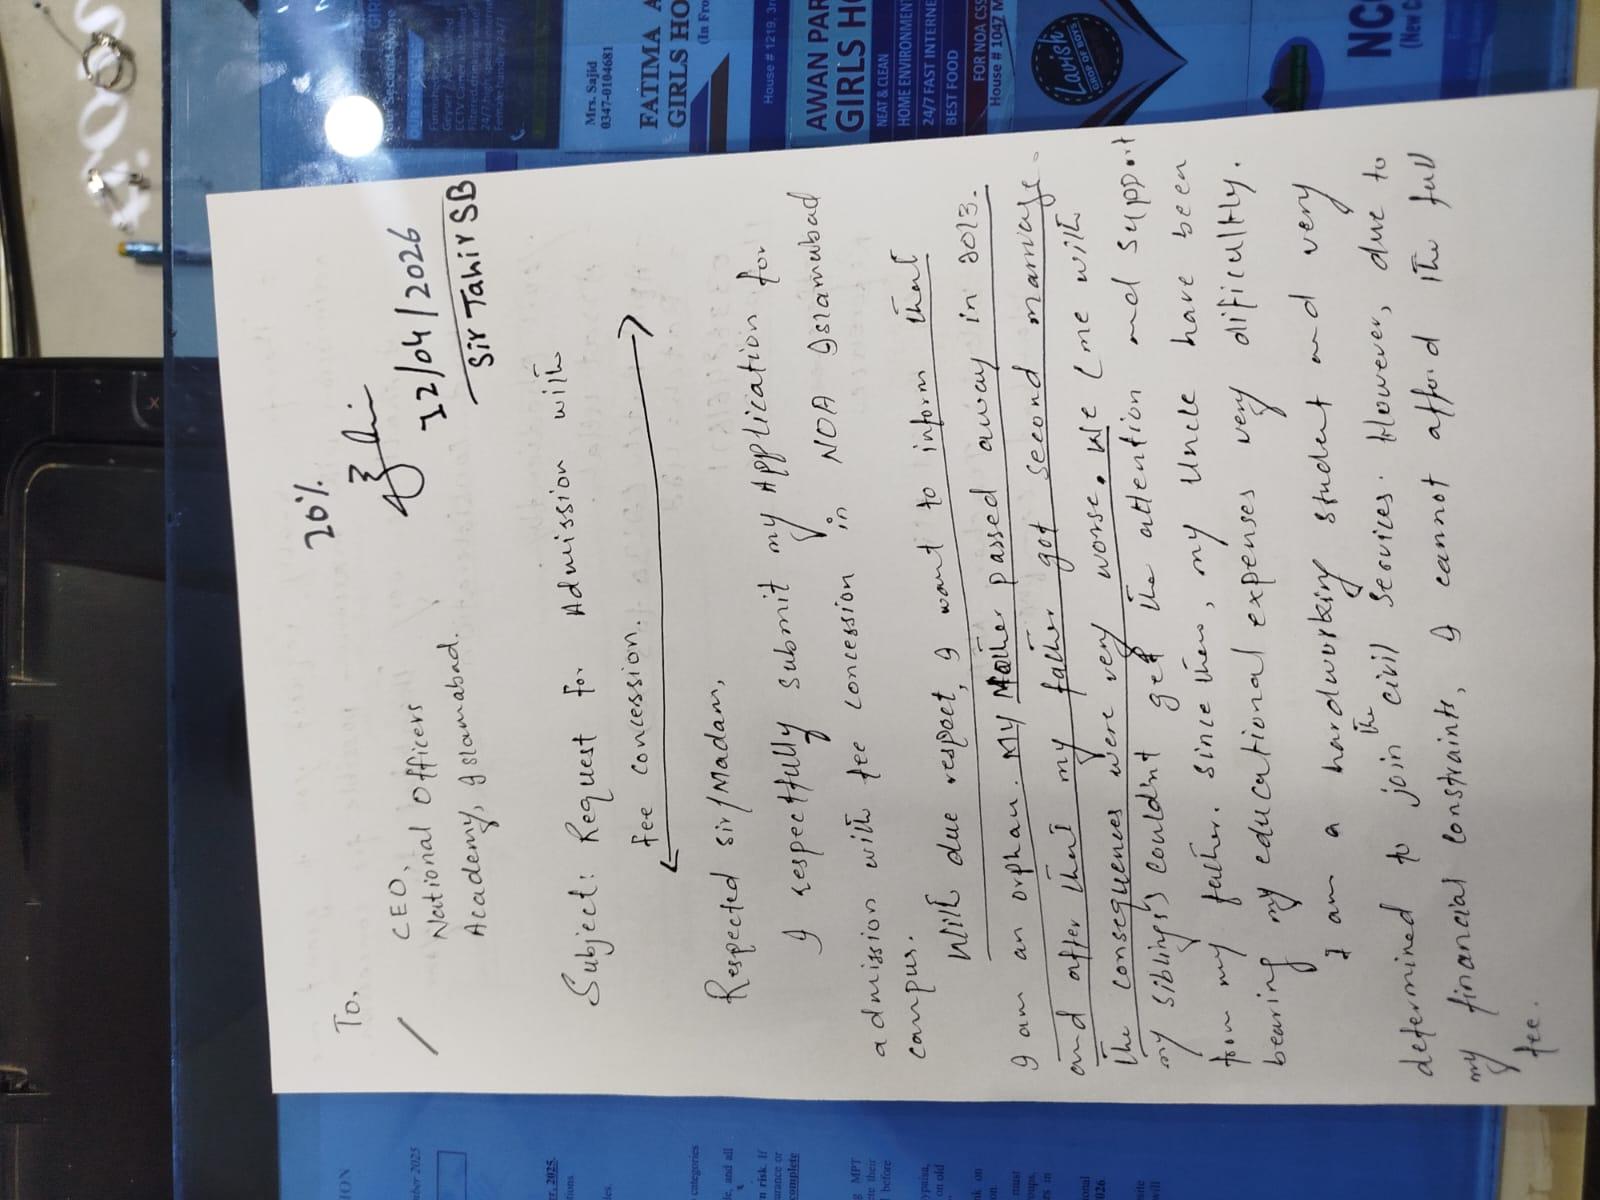 20%
12/04/2026
Sir Tahir SB
To,
CEO,
National Officers
Academy, Islamabad.
Subject: Request for Admission with
fee concession.
Respected sir/Madam,
I respectfully submit my Application for
admission with fee concession in NOA Islamabad
campus.
With due respect, I want to inform that
I am an orphan. My Mother passed away in 2013.
and after that my father got second marriage.
the consequences were very worse. We (me with
my siblings) couldnt get the attention and support
from my father. since then, my uncle have been
bearing my educational expenses very difficultly.
I am a hardworking student and very
determined to join the civil services. However, due to
my financial constraints, I cannot afford the full
fee.
Mrs. Sajid
0347-0104681
FATIMA A
GIRLS HO
(In Fro
House # 1219, 3r
AWAN PAR
GIRLS HO
NEAT & CLEAN
HOME ENVIRONMENT
24/7 FAST INTERNE
BEST FOOD
FOR NOA CSS
House # 1047 M
Lavish
DROP OF BOYS
NC
(New C